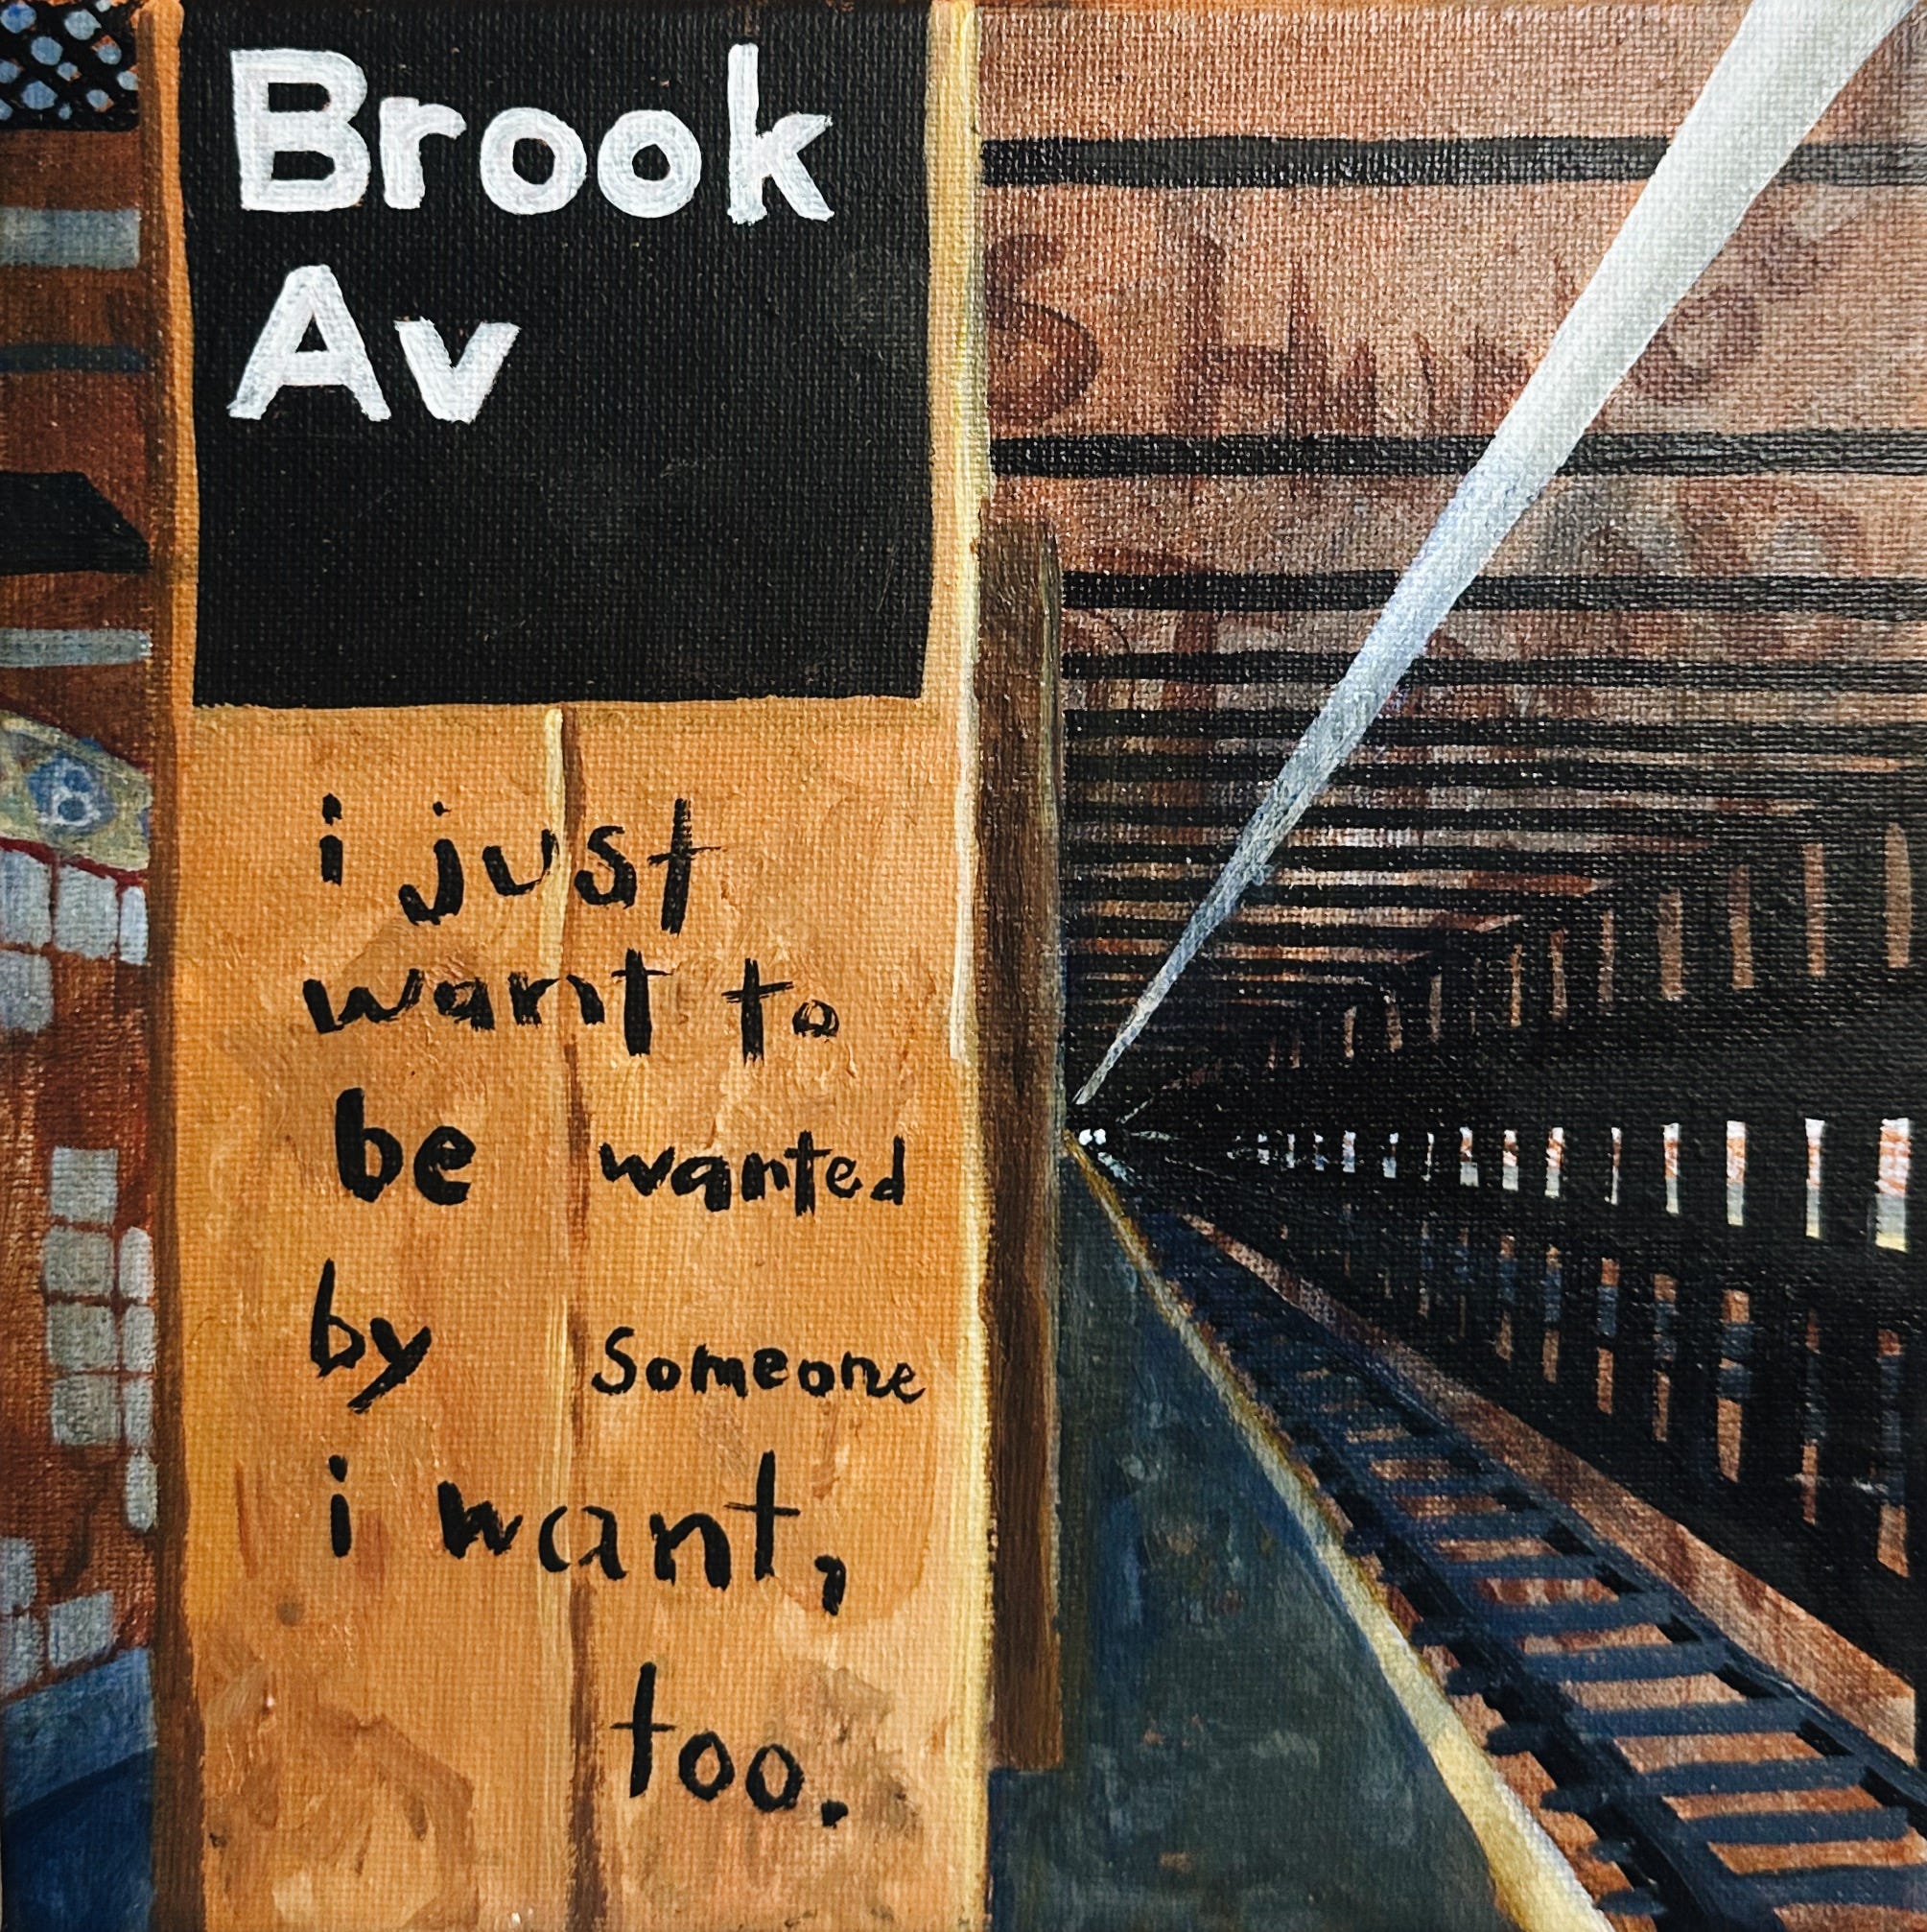 Brook
Av
i just
want to
be wanted
by someone
i want,
too.
B